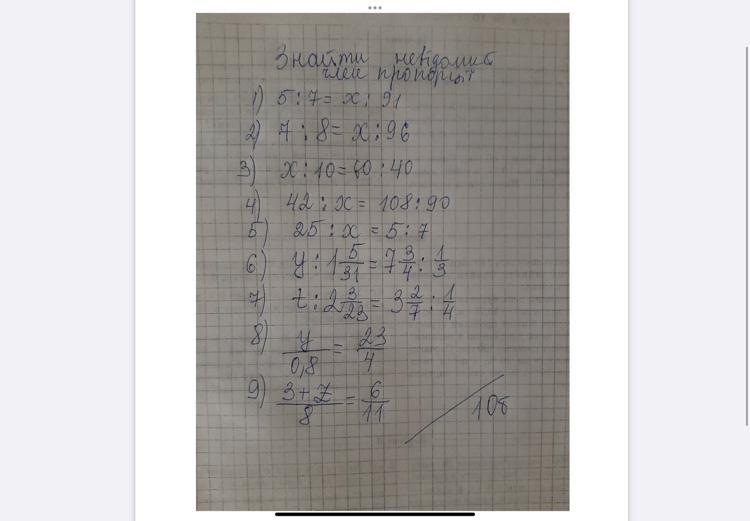 Знайти невідомий
член пропорції
1) 5:7 = x : 91
2) 7 : 8 = x : 96
3) x : 10 = 60 : 40
4) 42 : x = 108 : 90
5) 25 : x = 5 : 7
6) y : 1 5/31 = 7 3/4 : 1/3
7) t : 2 3/23 = 3 2/7 : 1/4
8) y/0,8 = 23/4
9) 3+z/8 = 6/11
108